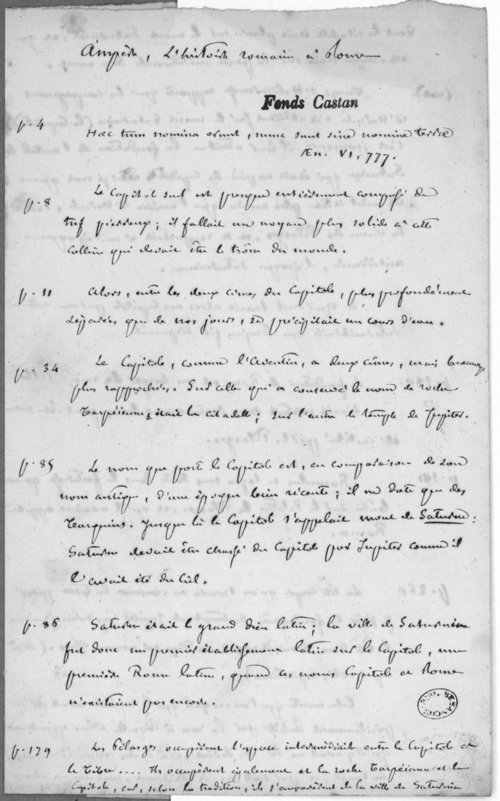 Ampère, L'histoire romaine à Rome
Fonds Castan
p. 4 Haec tum nomina erunt, nunc sunt sine nomine terrae
Æn. VI, 777.
p. 8 Le Capitole seul est presque entièrement composé de
tuf pierreux; il fallait un noyau plus solide à cette
colline qui devait être le trône du monde.
p. 11 Alors, entre les deux cimes du Capitole, plus profondément
séparées que de nos jours, se précipitait un cours d'eau.
p. 34 Le Capitole, comme l'Aventin, a deux cimes, mais beaucoup
plus rapprochées. Sur celle qui a conservé le nom de roche
Tarpéienne, était la citadelle; sur l'autre le temple de Jupiter.
p. 85 Le nom que porte le Capitole est, en comparaison de son
nom antique, d'une époque bien récente; il ne date que des
Tarquins. Jusque là le Capitole s'appelait mont de Saturne:
Saturne devait être chassé du Capitole par Jupiter comme il
l'avait été du Ciel.
p. 86 Saturne était le grand dieu latin; la ville de Saturnia
fut donc un premier établissement latin sur le Capitole, une
première Rome latine, quand les noms Capitole et Rome
n'existaient pas encore.
BIBL. DE BESANÇON
p. 179 Les Pélasges occupèrent l'espace intermédiaire entre le Capitole et
le Tibre.... Ils occupèrent également et la roche Tarpéienne et le
Capitole, car, selon la tradition, ils s'emparèrent de la ville de Saturnia